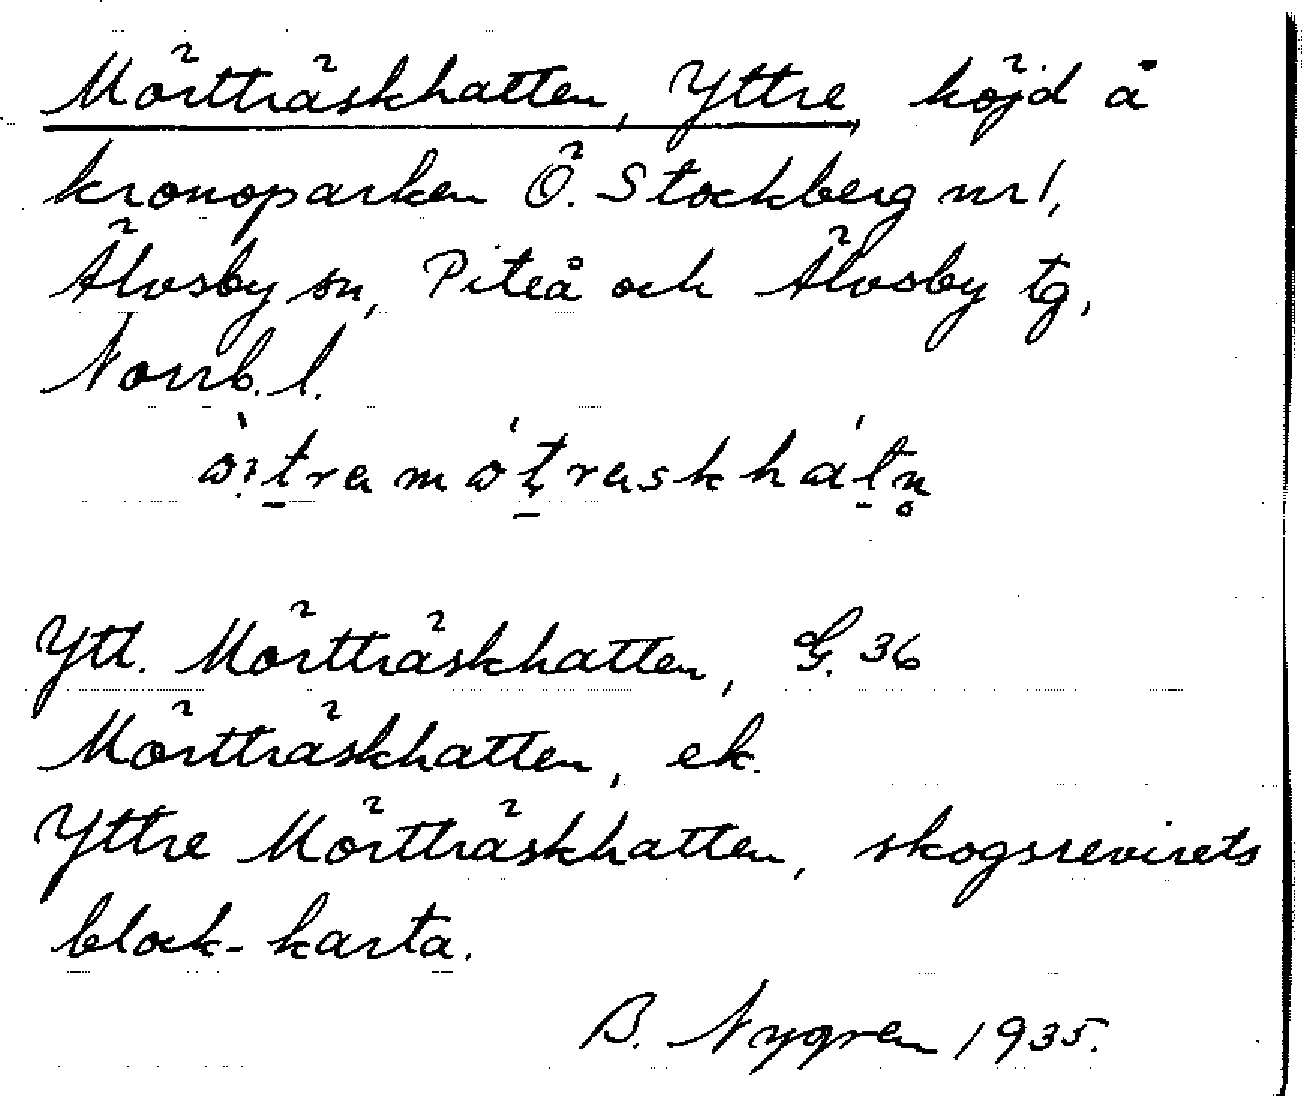 Mörtträskhatten, Yttre, höjd å
kronoparken Ö. Stockberg nr 1,
Älvsby sn, Piteå och Älvsby tg,
Norrb. l.
Ytt. Mörtträskhatten, G. 36
Mörtträskhatten, ek.
Yttre Mörtträskhatten, skogsrevirets
block-karta.
B. Nygren 1935.